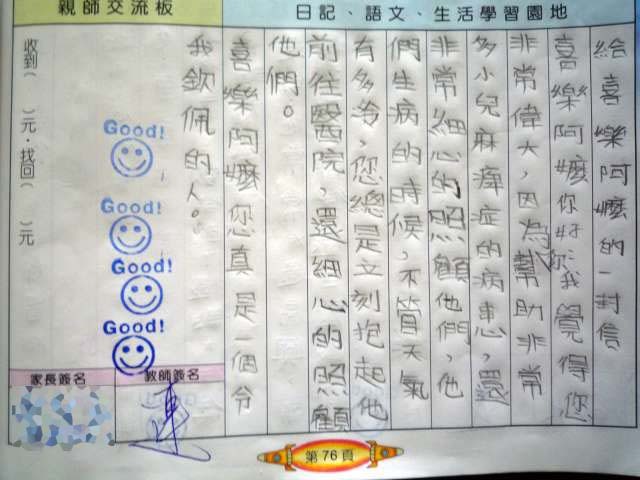 日記、語文、生活學習園地
給喜樂阿嬤的一封信
喜樂阿嬤你好：我覺得您
非常偉大，因為你幫助非常
多小兒麻痺症的病患，還
非常細心的照顧他們，他
們生病的時候，不管天氣
有多冷，您總是立刻抱起他
前往醫院，還細心的照顧
他們。
喜樂阿嬤您真是一個令
我欽佩的人。
親師交流板
收到（　）元．找回（　）元
Good!
Good!
Good!
Good!
教師簽名
家長簽名
第76頁